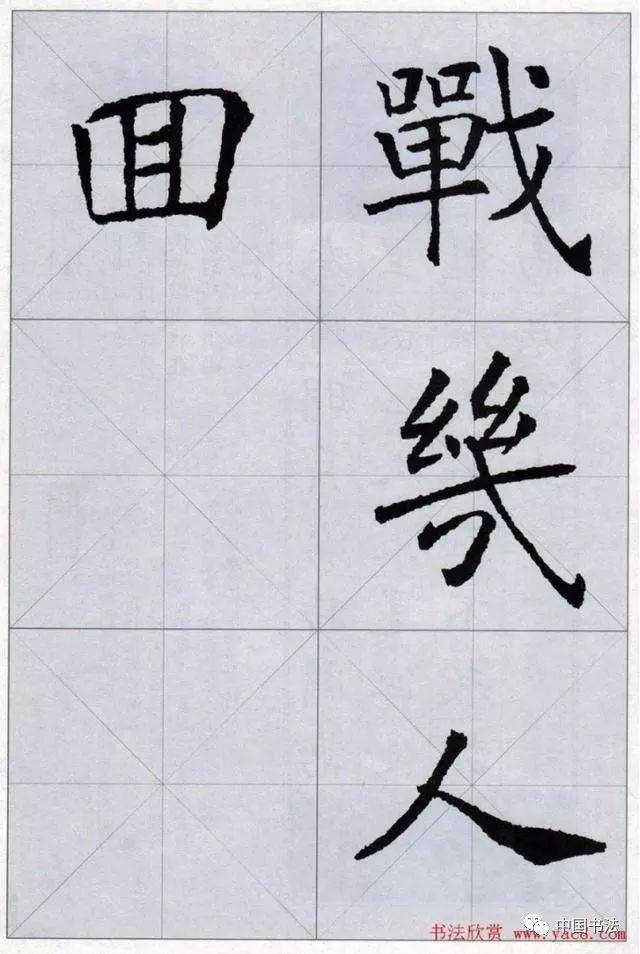 戰幾人
囬
中国书法
书法欣赏 www.yac8.com